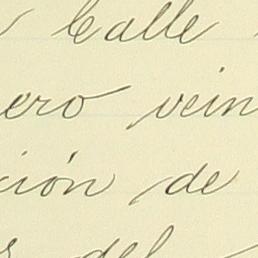 Calle
ero vein
ción de
s del